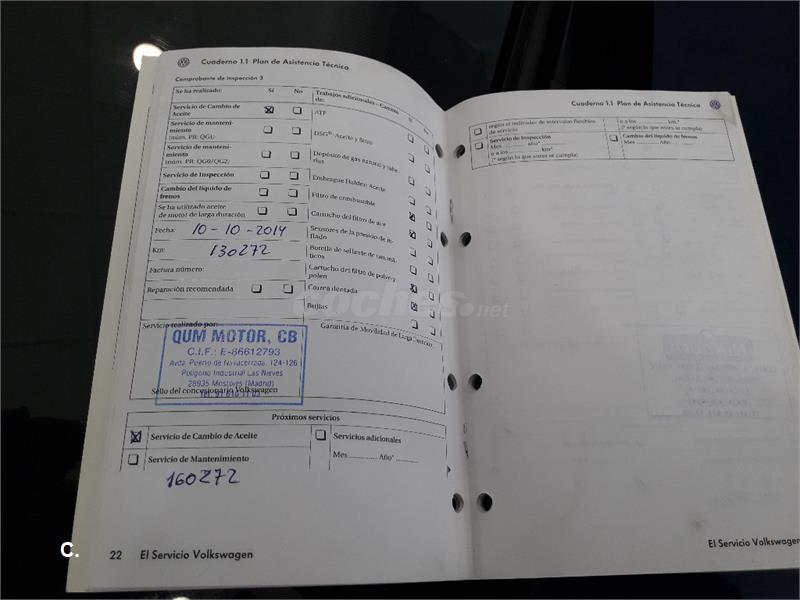 Cuaderno 1.1 Plan de Asistencia Técnica
Comprobante de inspección 3
Se ha realizado: Sí No
Servicio de Cambio de
Aceite
Servicio de manteni-
miento
(núm. PR: QG1)
Servicio de manteni-
miento
(núm. PR: QG0/QG2)
Servicio de Inspección
Cambio del líquido de
frenos
Se ha utilizado aceite
de motor de larga duración
Fecha: 10-10-2014
Km: 130272
Factura número:
Reparación recomendada
Trabajos adicionales - Cambio
de:
ATF
DSG®: Aceite y filtro
Depósito de gas natural y tube-
rías
Embrague Haldex: Aceite
Filtro de combustible
Cartucho del filtro de aire
Sensores de la presión de in-
flado
Botella de sellante de neumá-
ticos
Cartucho del filtro de polvo y
polen
Correa dentada
Bujías
Garantía de Movilidad de Larga Duración
Servicio realizado por:
QUM MOTOR, CB
C.I.F.: E-86612793
Avda. Puerto de Navacerrada, 124-126
Polígono Industrial Las Nieves
28935 Móstoles (Madrid)
Sello del concesionario Volkswagen
Próximos servicios
Servicio de Cambio de Aceite
Servicio de Mantenimiento
160272
Servicios adicionales
Mes ............ Año* ........
22 El Servicio Volkswagen
Cuaderno 1.1 Plan de Asistencia Técnica
según el indicador de intervalos flexibles
de servicio
Servicio de Inspección
Mes ............ año*
o a los ............ km*
(* según lo que antes se cumpla)
o a los ............ km.*
(* según lo que antes se cumpla)
Cambio del líquido de frenos
Mes ............ Año*
El Servicio Volkswagen
coches.net
C.